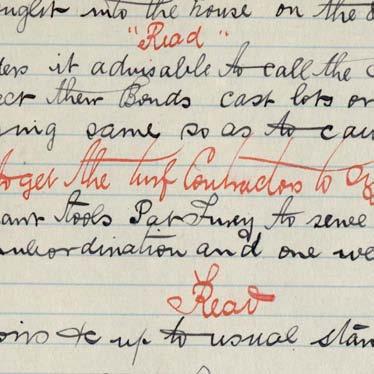 ought into the house on the
"Read"
ders it advisable to call the
ect their Bonds cast lots or
ing same so as to cau
to get the turf Contractors to
ant tools Pat Furey to serve
subordination and one we
Read
oins & up to usual stan